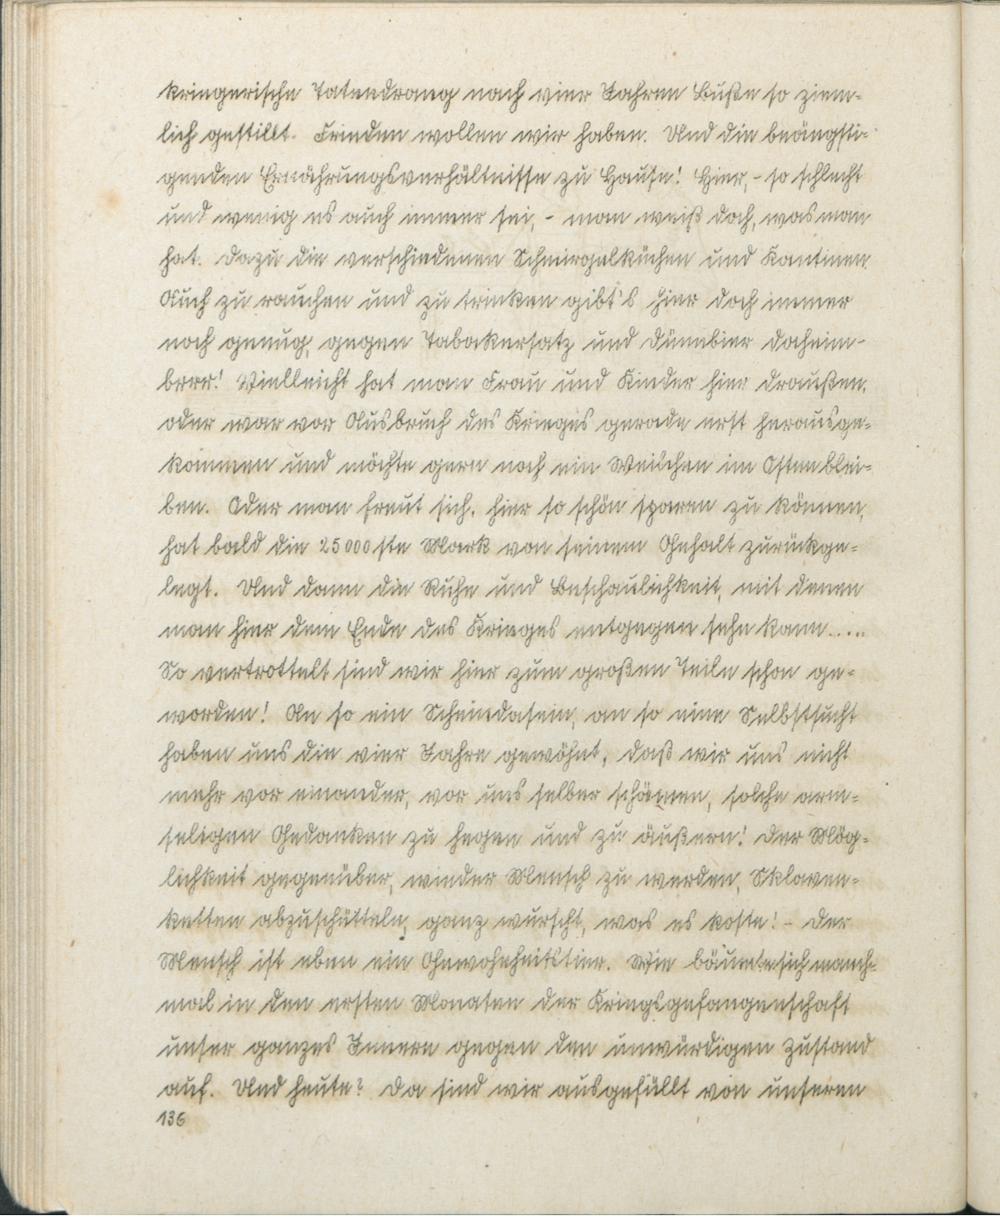 kriegerische Tatendrang nach vier Jahren Buße so ziem-
lich gestillt. Frieden wollen wir haben. Und die beängsti-
genden Ernährungsverhältnisse zu Hause! Hier, - so schlecht
und wenig es auch immer sei, - man weiß doch, was man
hat. Dazu die verschiedenen Schmirgelküchen und Kantinen.
Auch zu rauchen und zu trinken gibt's hier doch immer
noch genug, gegen Tabakersatz und Dünnbier daheim-
brrr! Vielleicht hat man Frau und Kinder hier draußen,
oder war vor Ausbruch des Krieges gerade erst herausge-
kommen und möchte gern noch ein Weilchen im Osten blei-
ben. Oder man freut sich, hier so schön sparen zu können,
hat bald die 25000ste Mark von seinem Gehalt zurückge-
legt. Und dann die Ruhe und Beschaulichkeit, mit denen
man hier dem Ende des Krieges entgegen sehn kann.....
So vertrottelt sind wir hier zum großen Teile schon ge-
worden! An so ein Scheindasein, an so eine Selbstsucht
haben uns die vier Jahre gewöhnt, daß wir uns nicht
mehr vor einander, vor uns selber schämen, solche arm-
seligen Gedanken zu hegen und zu äußern! Der Mög-
lichkeit gegenüber, wieder Mensch zu werden, Sklaven-
ketten abzuschütteln, ganz wurscht, was es koste! - Der
Mensch ist eben ein Gewohnheitstier. Wie bäumte sich manch-
mal in den ersten Monaten der Kriegsgefangenschaft
unser ganzes Innere gegen den unwürdigen Zustand
auf. Und heute? Da sind wir ausgefüllt von unseren
136